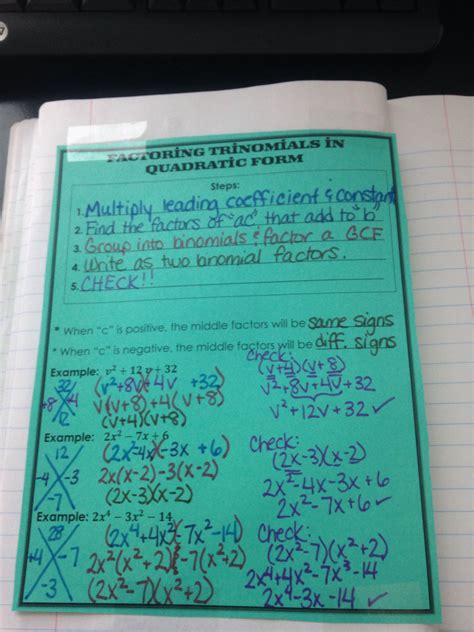 FACTORING TRINOMIALS IN
QUADRATIC FORM
Steps:
1. Multiply leading coefficient & constant
2. Find the factors of "ac" that add to "b"
3. Group into binomials & factor a GCF
4. Write as two binomial factors.
5. CHECK!!
* When "c" is positive, the middle factors will be same signs
* When "c" is negative, the middle factors will be diff. signs
Example: v² + 12v + 32
32
+8 +4
12
(v²+8v)(+4v +32)
v(v+8)+4(v+8)
(v+4)(v+8)
Check:
(v+4)(v+8)
v²+8v+4v+32
v²+12v+32 ✓
Example: 2x² − 7x + 6
12
-4 -3
-7
(2x²-4x)(-3x +6)
2x(x-2)-3(x-2)
(2x-3)(x-2)
Check:
(2x-3)(x-2)
2x²-4x-3x+6
2x²-7x+6 ✓
Example: 2x⁴ − 3x² − 14
28
+4 -7
-3
(2x⁴+4x²)(-7x²-14)
2x²(x²+2)-7(x²+2)
(2x²-7)(x²+2)
Check:
(2x²-7)(x²+2)
2x⁴+4x²-7x³-14
2x⁴-3x-14 ✓